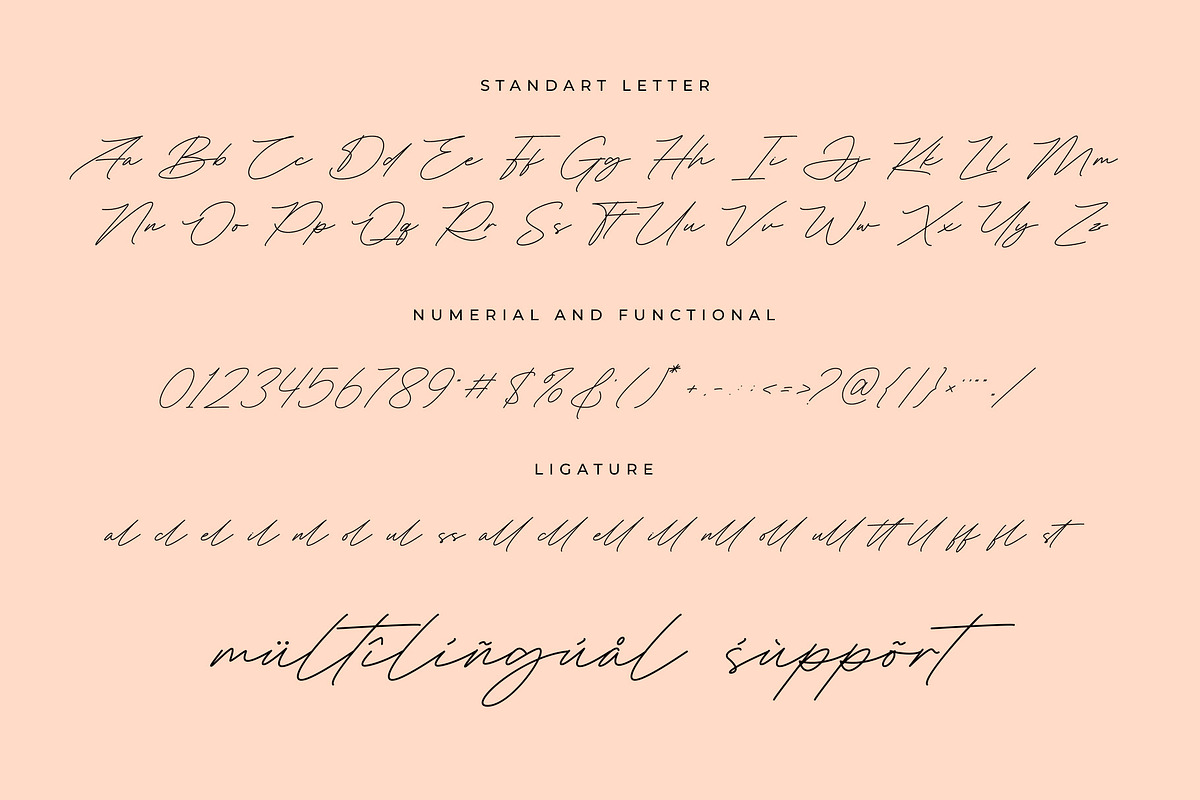 STANDART LETTER
Aa Bb Cc Dd Ee Ff Gg Hh Ii Jj Kk Ll Mm
Nn Oo Pp Qq Rr Ss Tt Uu Vv Ww Xx Yy Zz
NUMERIAL AND FUNCTIONAL
0123456789 # $ % & ( ) * + , - . : ; < = > ? @ { | } /
LIGATURE
al cl el il nl ol ul ss all cll ell ill nll oll ull tt ll ff fl st
mültîlíñgúål śùppõrt